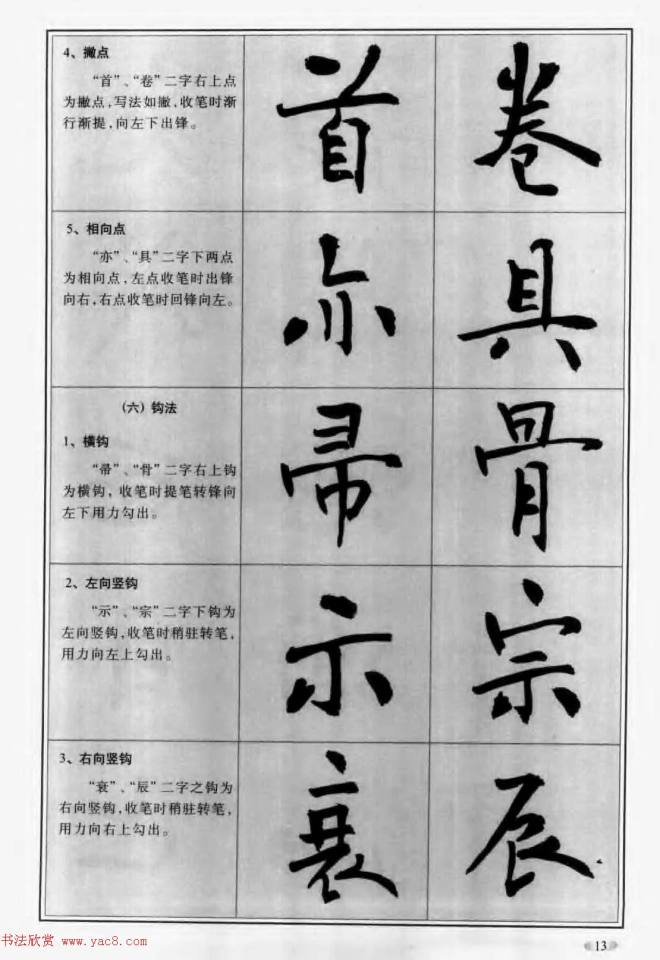 4、撇点
“首”、“卷”二字右上点
为撇点,写法如撇,收笔时渐
行渐提,向左下出锋。
首 卷
5、相向点
“亦”、“具”二字下两点
为相向点,左点收笔时出锋
向右,右点收笔时回锋向左。
亦 具
(六) 钩法
1、横钩
“帚”、“骨”二字右上钩
为横钩,收笔时提笔转锋向
左下用力勾出。
帚 骨
2、左向竖钩
“示”、“宗”二字下钩为
左向竖钩,收笔时稍驻转笔,
用力向左上勾出。
示 宗
3、右向竖钩
“衰”、“辰”二字之钩为
右向竖钩,收笔时稍驻转笔,
用力向右上勾出。
衰 辰
书法欣赏 www.yac8.com
13